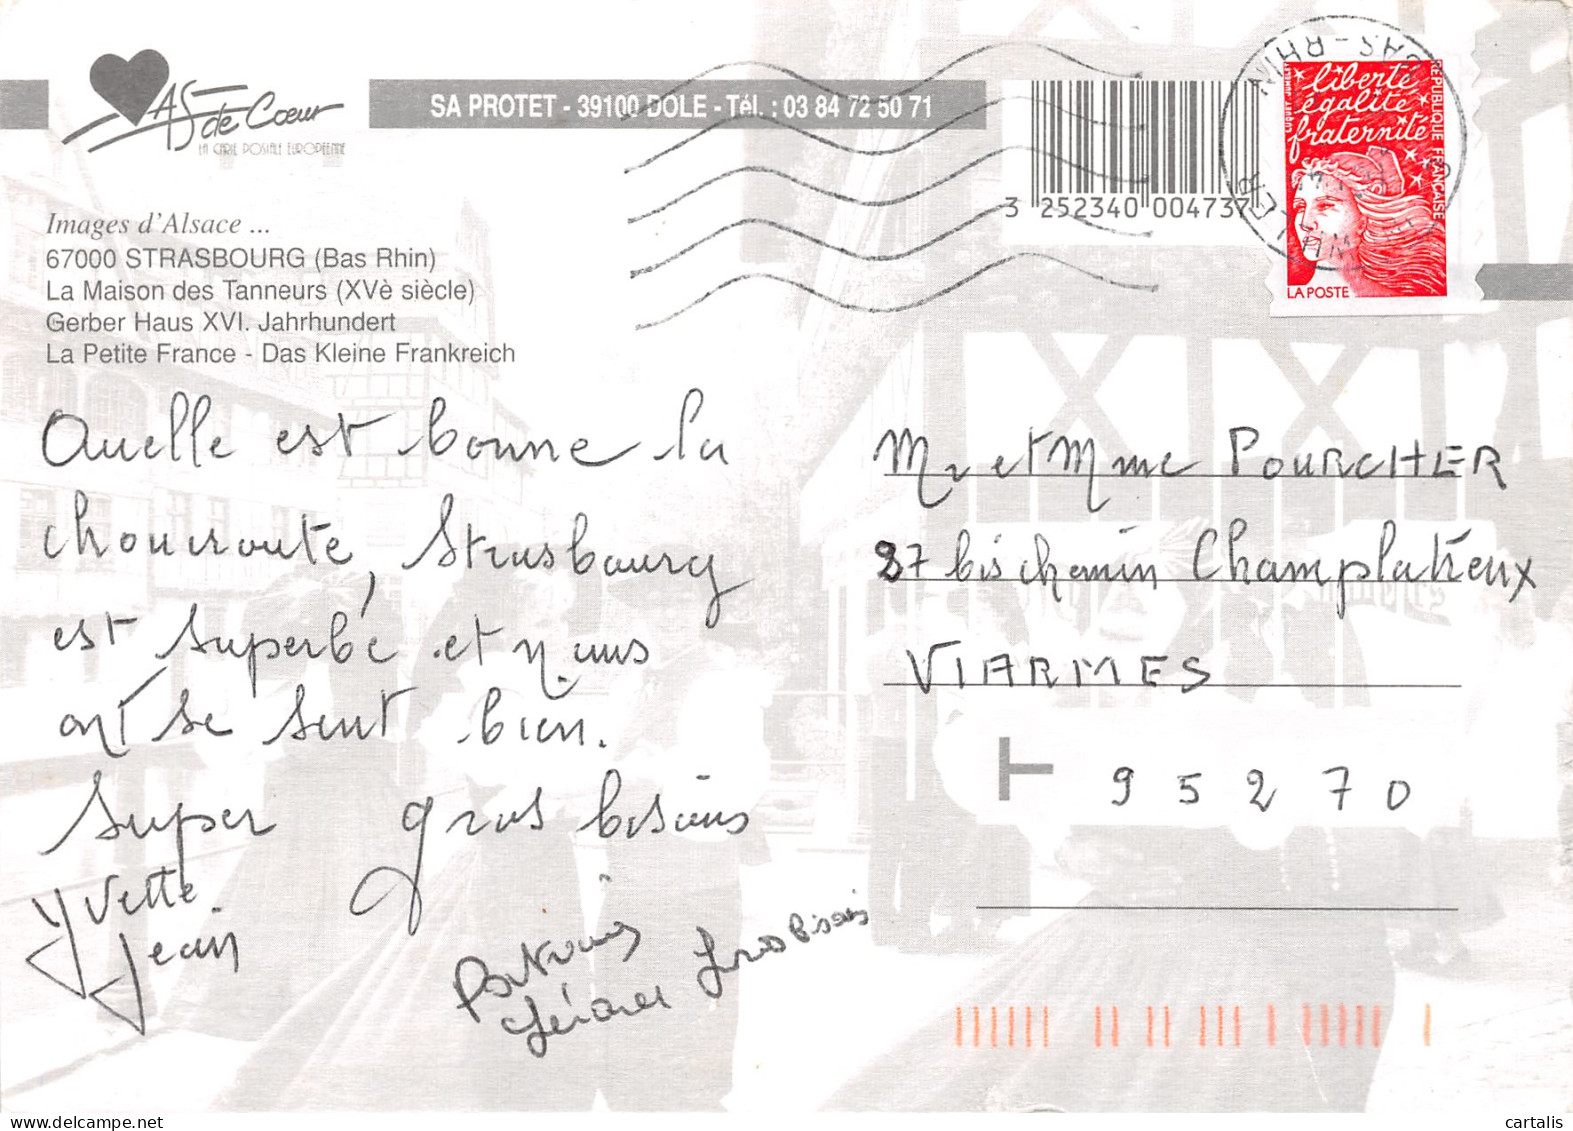 AS de Cœur
LA CARTE POSTALE EUROPÉENNE
SA PROTET - 39100 DOLE - Tél. : 03 84 72 50 71
3 252340 004737
BAS-RHIN
liberté
égalité
fraternité
RÉPUBLIQUE FRANÇAISE
LA POSTE
Images d'Alsace ...
67000 STRASBOURG (Bas Rhin)
La Maison des Tanneurs (XVè siècle)
Gerber Haus XVI. Jahrhundert
La Petite France - Das Kleine Frankreich
Quelle est bonne la
choucroute, Strasbourg
est superbe et nous
ont se sent bien.
Super gros bisous
Yvette
Jean
Patricia
Gérard Gros bisous
Mr et Mme POURCHER
27 bis chemin Champlatreux
VIARMES
95270
cartalis